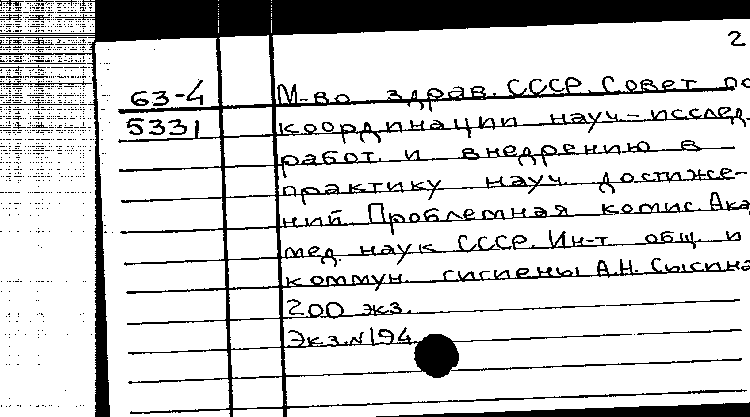 2
63-4 М-во здрав. СССР. Совет по
5331 координации науч.-исслед.
работ. и внедрению в
практику науч. достиже-
ний. Проблемная комис. Ака
мед. наук СССР. Ин-т общ. и
коммун. гигиены А.Н. Сысина
200 экз.
Экз.№194